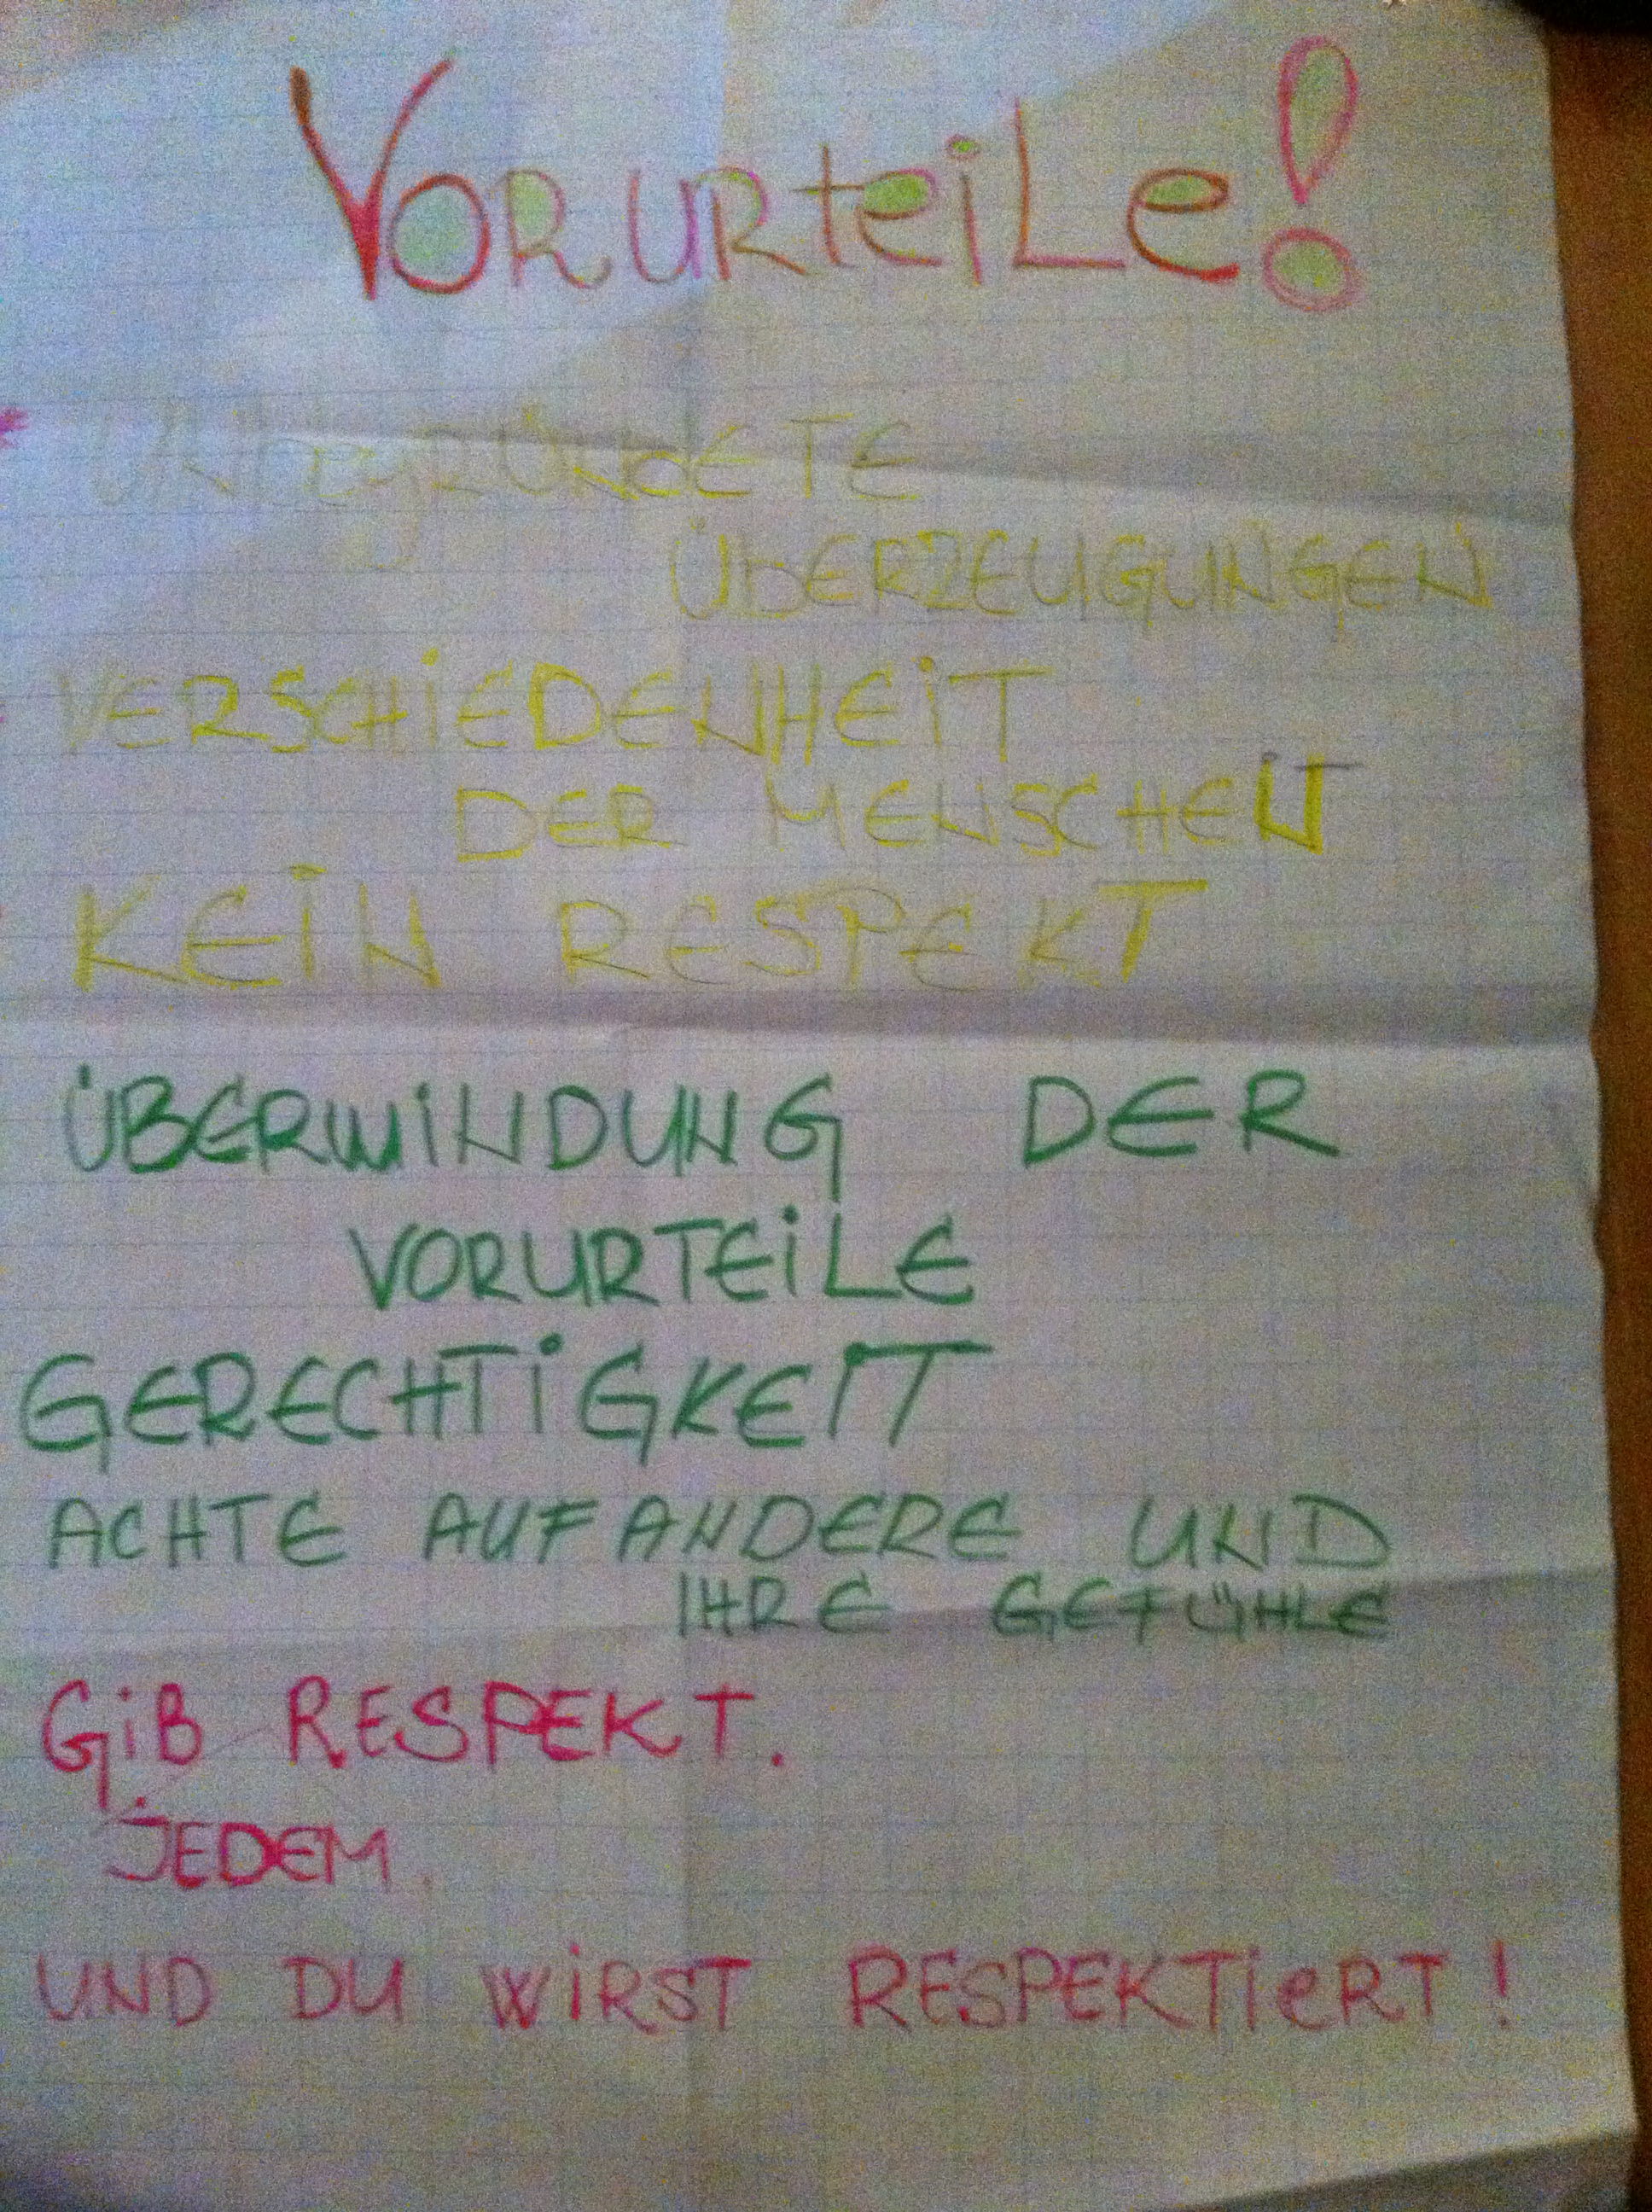 Vorurteile!
* ÜBERZEUGUNGEN
VERSCHIEDENHEIT
DER MENSCHEN
KEIN RESPEKT
ÜBERWINDUNG DER
VORURTEILE
GERECHTIGKEIT
ACHTE AUF ANDERE UND
IHRE GEFÜHLE
GIB RESPEKT.
JEDEM.
UND DU WIRST RESPEKTIERT!